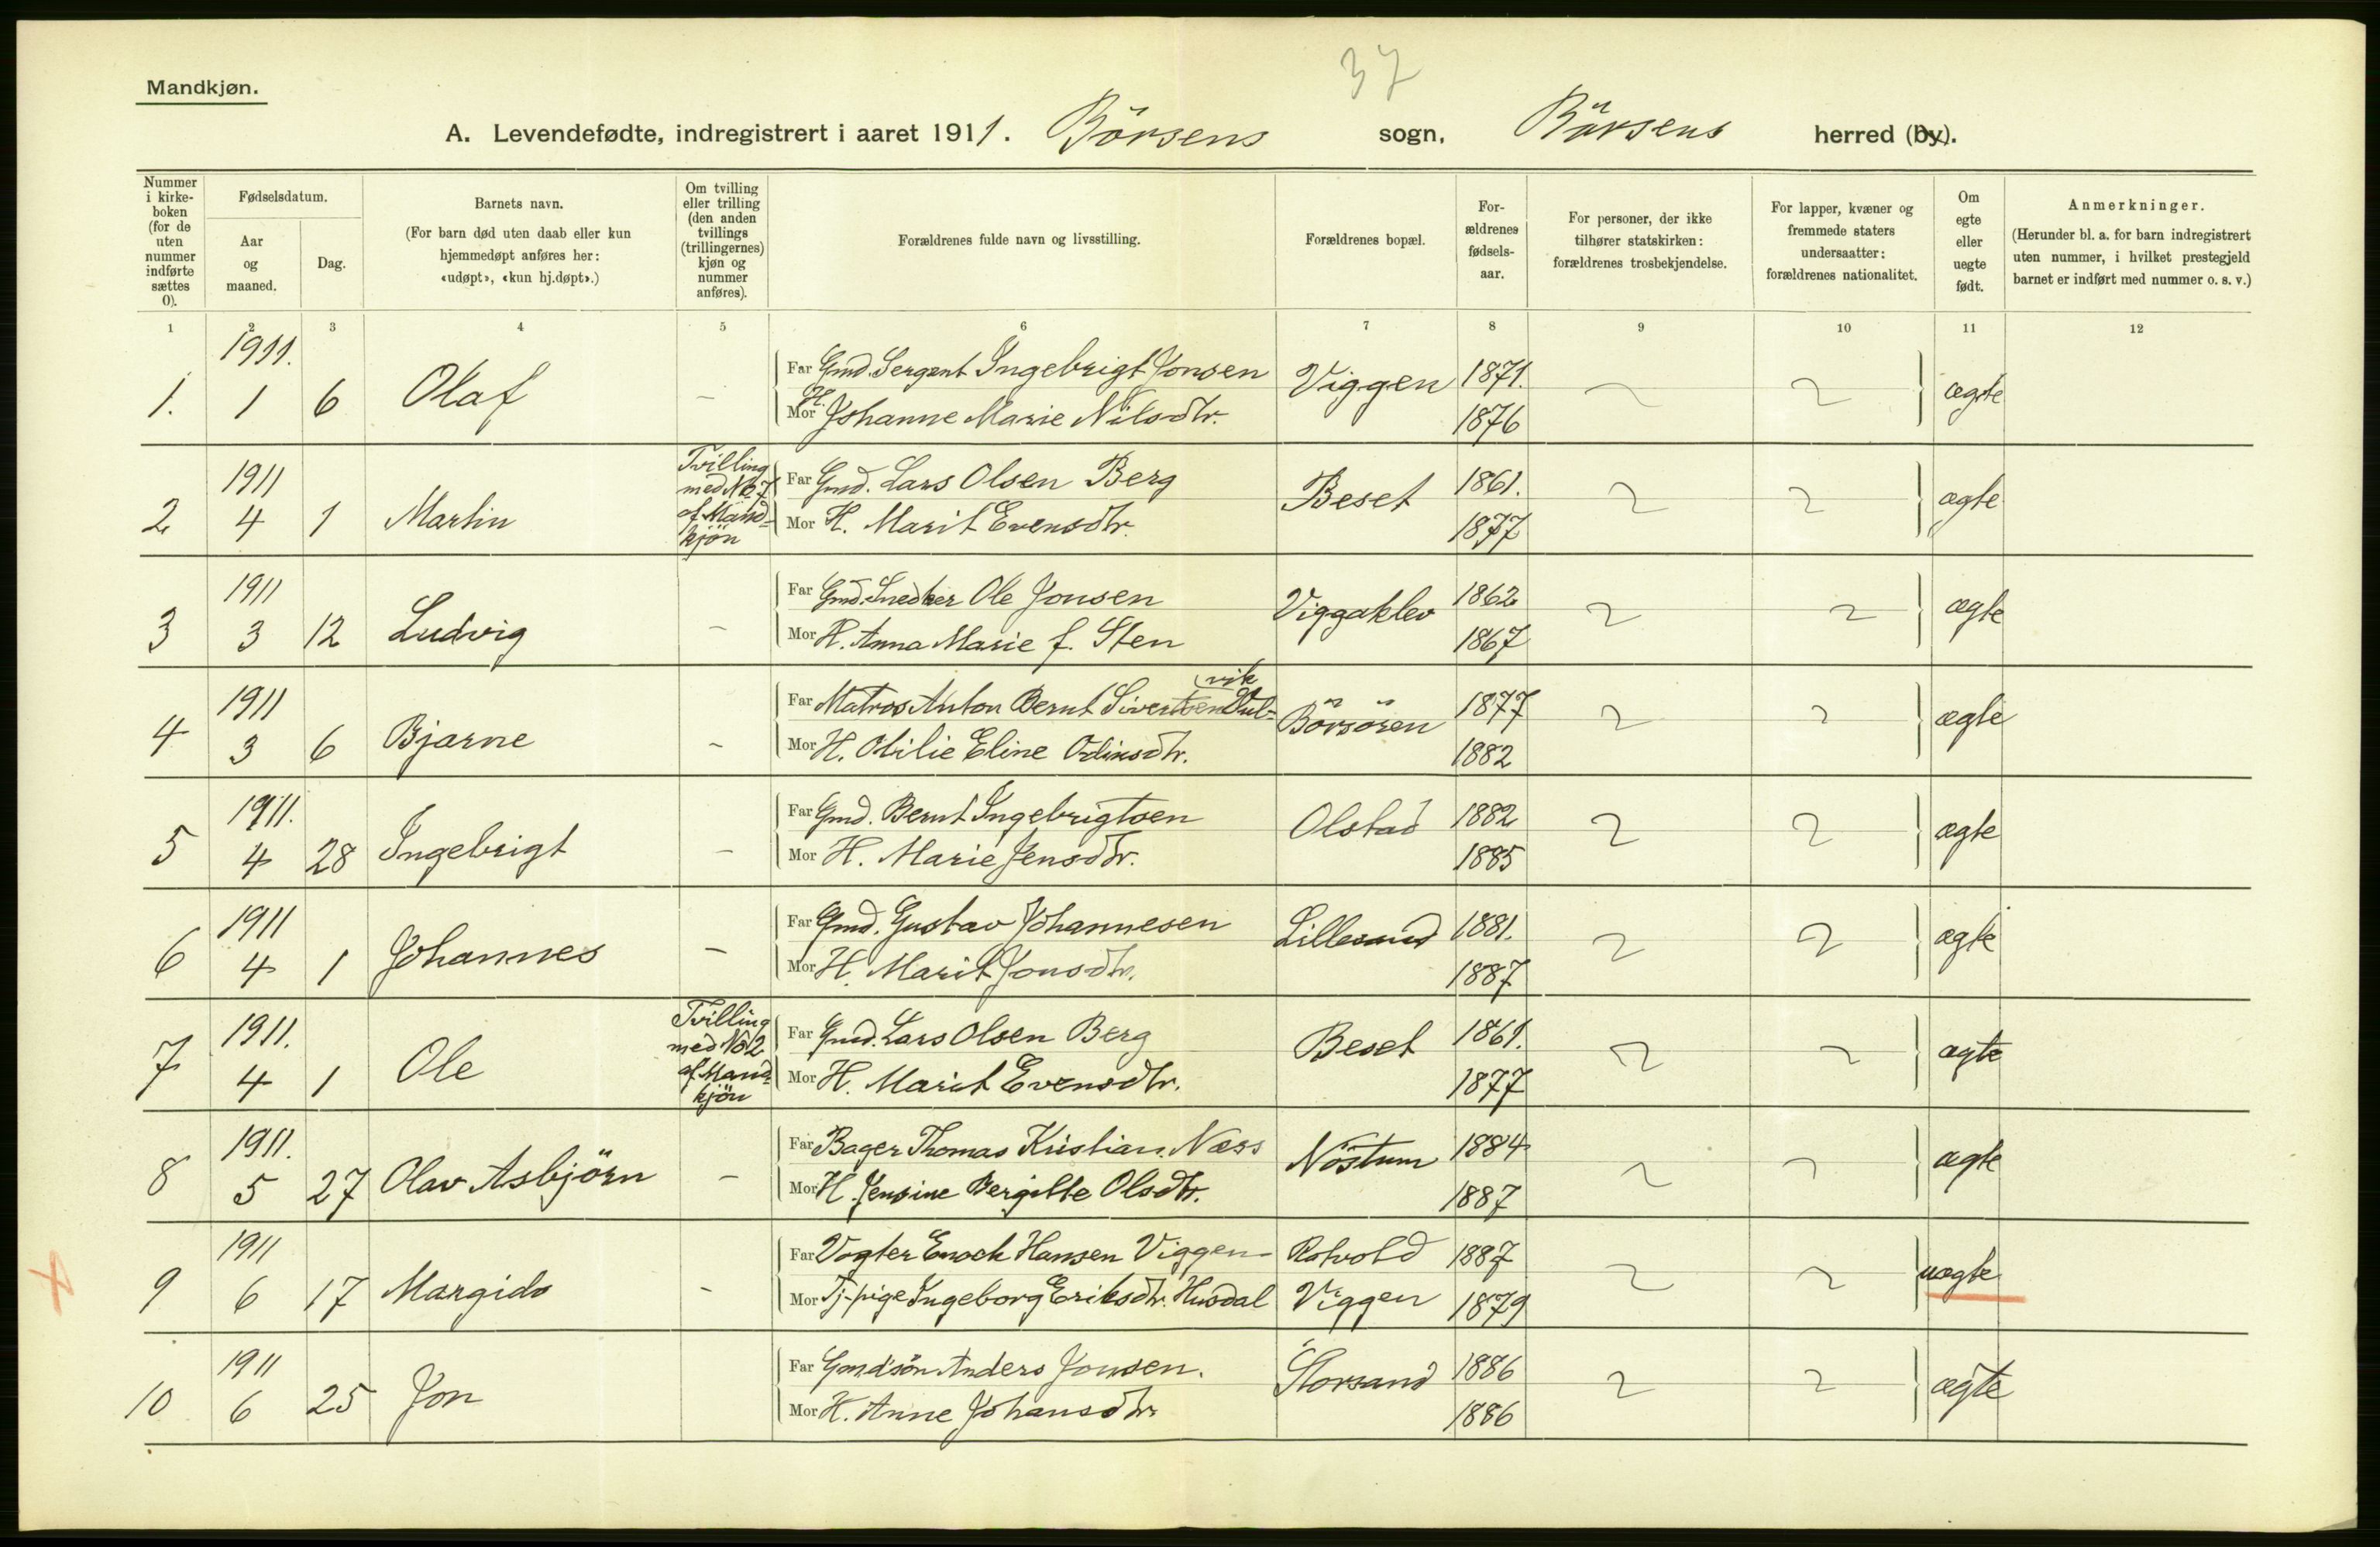 37
Mandkjøn.
A. Levendefødte, indregistrert i aaret 1911. Börsens sogn, Börsens herred (by).
Nummer
i kirke-
boken
(for de
uten
nummer
indførte
sættes
0).
Fødselsdatum.
Aar
og
maaned.
Dag.
Barnets navn.
(For barn død uten daab eller kun
hjemmedøpt anføres her:
«udøpt», «kun hj.døpt».)
Om tvilling
eller trilling
(den anden
tvillings
(trillingernes)
kjøn og
nummer
anføres).
Forældrenes fulde navn og livsstilling.
Forældrenes bopæl.
For-
ældrenes
fødsels-
aar.
For personer, der ikke
tilhører statskirken:
forældrenes trosbekjendelse.
For lapper, kvæner og
fremmede staters
undersaatter:
forældrenes nationalitet.
Om
egte
eller
uegte
født.
Anmerkninger.
(Herunder bl. a. for barn indregistrert
uten nummer, i hvilket prestegjeld
barnet er indført med nummer o. s. v.)
1 2 3 4 5 6 7 8 9 10 11 12
1911.
1. 1 6 Olaf -
Far Gmd. Sergent Ingebrigt Jonsen Viggen 1871. ægte
Mor H. Johanne Marie Nilsdtr. 1876
1911
2 4 1 Martin
Tvilling
med No 7
af Mand-
kjön
Far Gmd. Lars Olsen Berg Beset 1861. ægte
Mor H. Marit Evensdtr. 1877
1911
3 3 12 Ludvig -
Far Gmd. Snedker Ole Jonsen Viggaklev 1862 ægte
Mor H. Anna Marie f. Sten 1867
1911
4 3 6 Bjarne -
vik
Far Matros Anton Bernt Sivertsen Hul- Börsören 1877 ægte
Mor H. Otilie Eline Odinsdtr. 1882
1911.
5 4 28 Ingebrigt -
Far Gmd. Bernt Ingebrigtsen Olstad 1882 ægte
Mor H. Marie Jensdtr. 1885
1911
6 4 1 Johannes -
Far Gmd. Gustav Johannesen Lillesand 1881. ægte
Mor H. Marit Jonsdtr. 1887
1911.
7 4 1 Ole
Tvilling
med No 2
af Mand-
kjön
Far Gmd. Lars Olsen Berg Beset 1861. ægte
Mor H. Marit Evensdtr. 1877
1911.
8 5 27 Olav Asbjörn -
Far Bager Thomas Kristian Næss Nöstum 1884 ægte
Mor H. Jensine Bergitte Olsdtr. 1887
1911
9 6 17 Margido -
Far Vogter Enock Hansen Viggen Rotvold 1887 uægte
Mor Tj.pige Ingeborg Eriksdtr. Husdal Viggen 1879
1911
10 6 25 Jon
Far Gmd.sön Anders Jonsen. Storsand 1886 ægte
Mor H. Anne Johansdtr. 1886